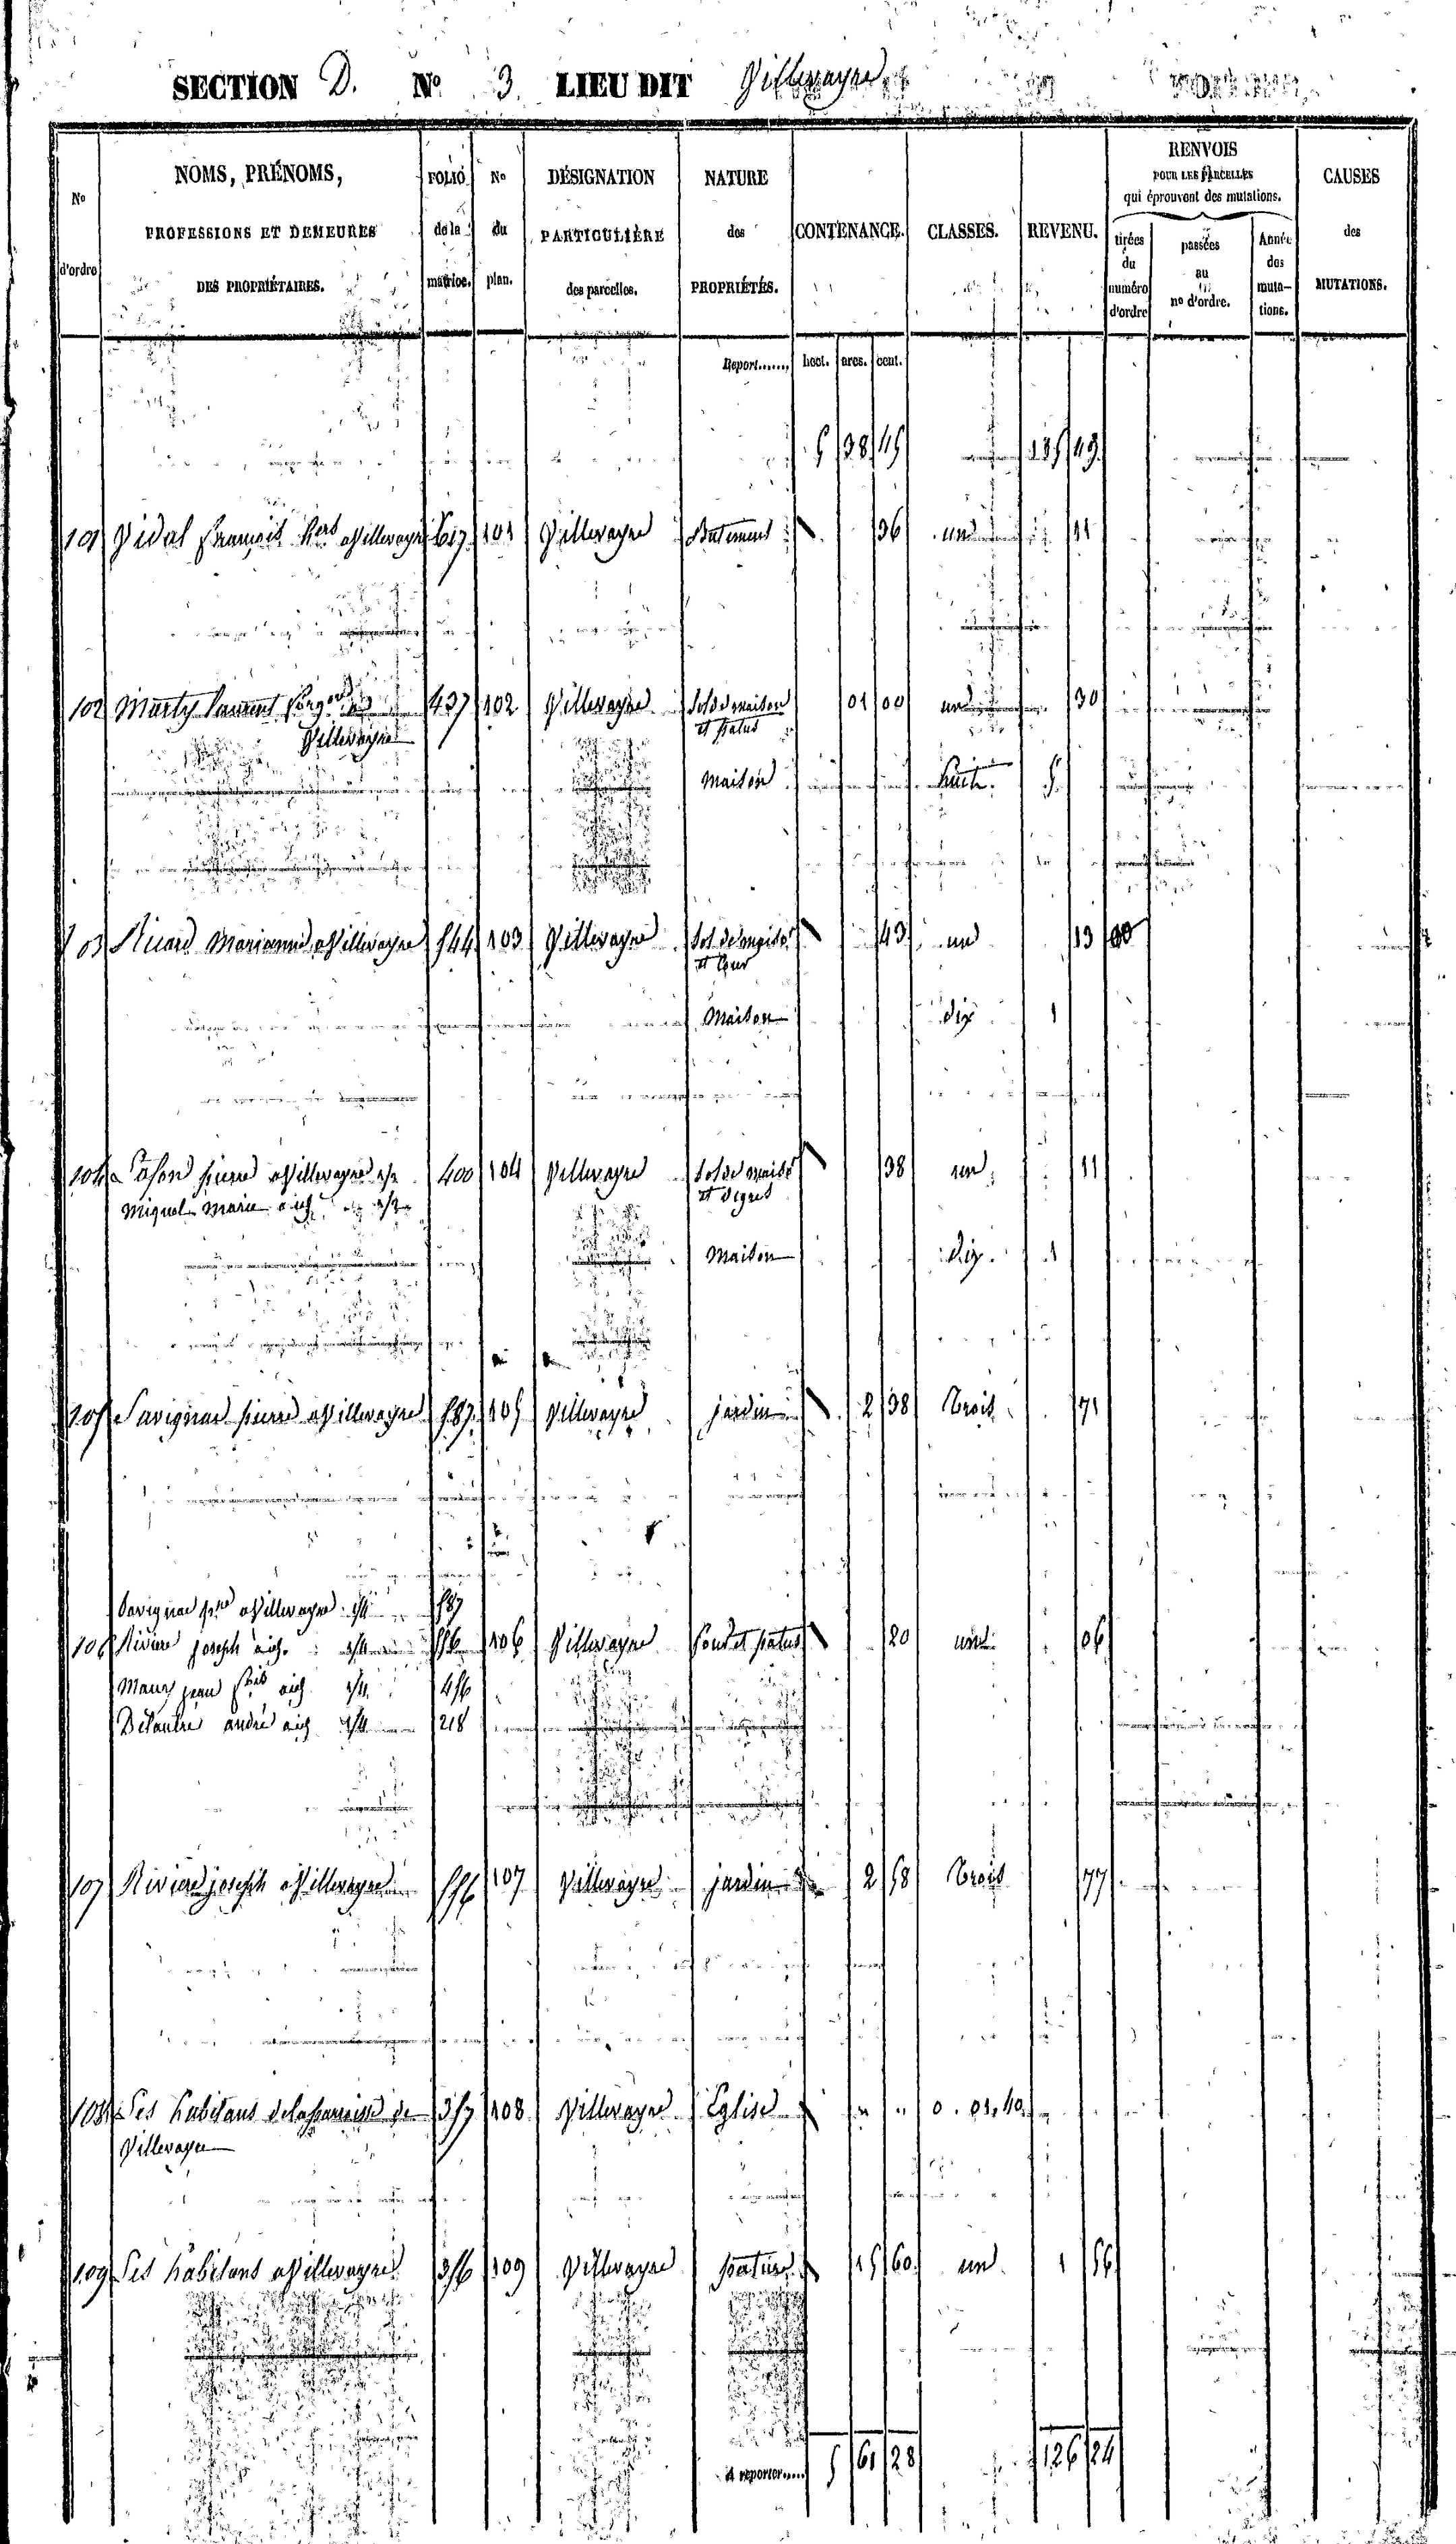 SECTION D. No 3 LIEU DIT Villevayre
No d'ordre
NOMS, PRÉNOMS,
PROFESSIONS ET DEMEURES
DES PROPRIÉTAIRES.
FOLIO de la matrice.
No du plan.
DÉSIGNATION
PARTICULIÈRE
des parcelles.
NATURE
des
PROPRIÉTÉS.
CONTENANCE.
CLASSES.
REVENU.
RENVOIS
POUR LES PARCELLES
qui éprouvent des mutations.
tirées du numéro d'ordre
passées au no d'ordre.
Année des muta- tions.
CAUSES
des
MUTATIONS.
Report...... hect. ares. cent.
5 38 45
101 Vidal françois Villevayre 617 101 Villevayre Batiment 36 une 11
102 Marty Laurent 437 102 Villevayre Sol de maison 01 00 une 30
Villevayre et patus
Maison huit 5
103 Ricard Marianne a Villevayre 544 103 Villevayre Sol de maison 43 une 13
et Cour
Maison dix 1
104 pierre a Villevayre 1/2 400 104 Villevayre Sol de maison 38 une 11
Miquel Marie 1/2 et degrés
Maison dix 1
105 Savignac pierre a Villevayre 587 105 Villevayre jardin 2 38 trois 71
Savignac pre a Villevayre 1/4 587
106 Riviere joseph 1/4 556 106 Villevayre four et patus 20 une 06
Maury jean 1/4 456
andré 1/4 218
107 Riviere joseph a Villevayre 556 107 Villevayre jardin 2 58 trois 77
108 Les habitans de la paroisse de 357 108 Villevayre Eglise 0. 01, 40
Villevayre
109 Les habitans a Villevayre 356 109 Villevayre patus 15 60 une 1 56
A reporter..... 5 61 28 126 24